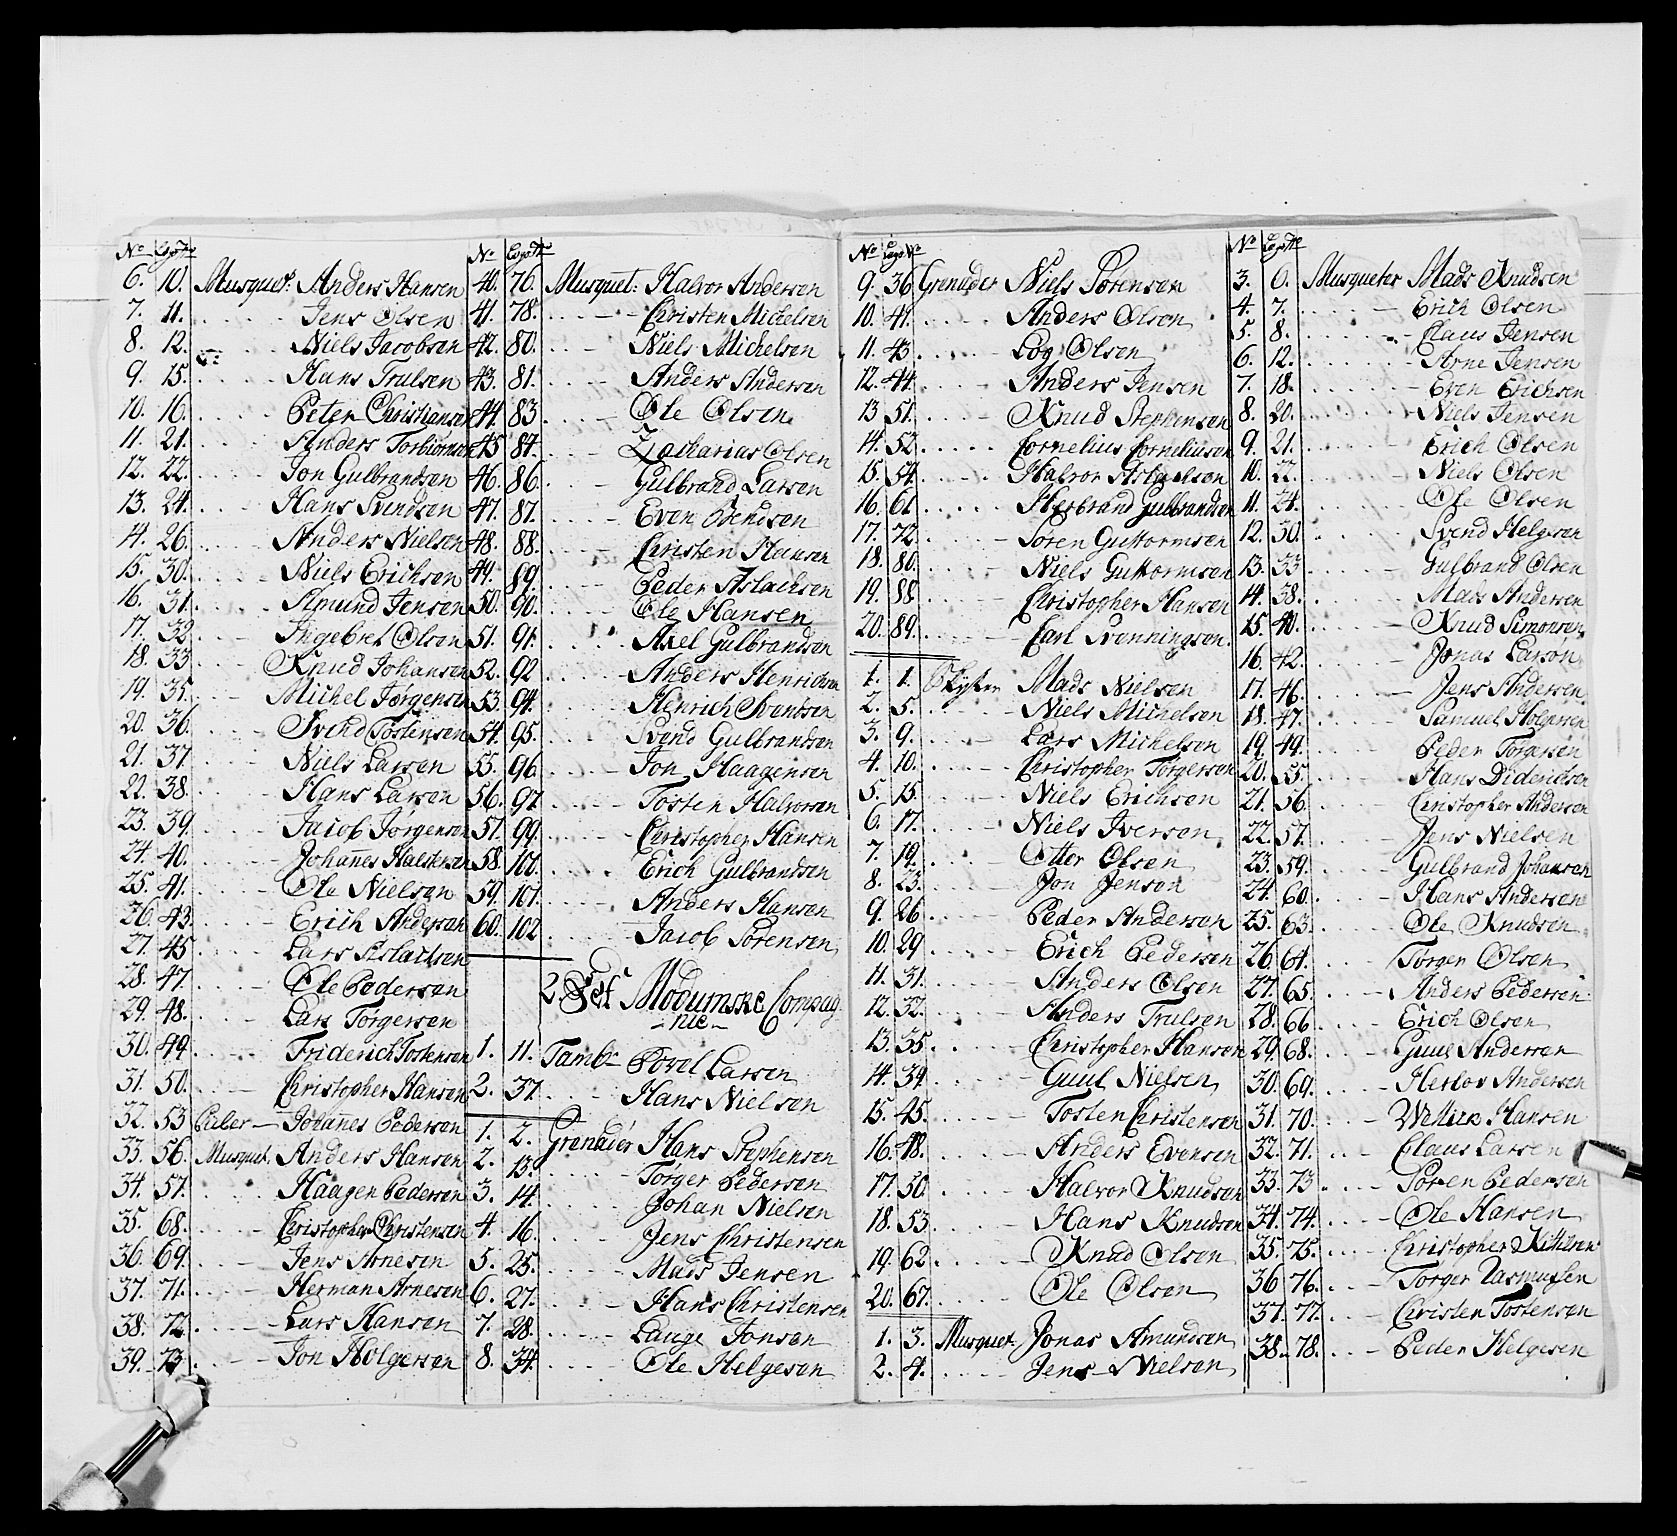 No Lægd No
6. 10. Musquet: Anders Hansen
7. 11. Jens Olsen
8. 12. Niels Jacobsen
9. 15. Hans Trulsen
10. 16. Peter Christiansen
11. 21. Anders Torbiornsen
12. 22. Jon Gulbrandsen
13. 24. Hans Svendsen
14. 26. Anders Nielsen
15. 30. Niels Erichsen
16. 31. Amund Jensen
17. 32. Ingebret Olsen
18. 33. Knud Johansen
19. 35. Michel Jørgensen
20. 36. Svend Tostensen
21. 37. Niels Larsen
22. 38. Hans Larsen
23. 39. Jacob Jørgensen
24. 40. Johannes Halstensen
25. 41. Ole Nielsen
26. 43. Erich Andersen
27. 45. Lars Aslachsen
28. 47. Ole Pedersen
29. 48. Lars Torgersen
30. 49. Friderich Tostensen
31. 50. Christopher Hansen
32. 53. Johannes Pedersen
33. 56. Musquet. Anders Hansen
34. 57. Haagen Pedersen
35. 68. Christopher Christensen
36. 69. Jens Arnesen
37. 71. Herman Arnesen
38. 72. Lars Hansen
39. 73. Jon Holgersen
No Lægd No
40. 76. Musquet: Halvor Andersen
41. 78. Christen Michelsen
42. 80. Niels Michelsen
43. 81. Anders Andersen
44. 83. Ole Olsen
45. 84. Zacharias Olsen
46. 86. Gulbrand Larsen
47. 87. Even Bendsen
48. 88. Christen Hansen
49. 89. Peder Aslachsen
50. 90. Ole Hansen
51. 91. Axel Gulbrandsen
52. 92. Anders Henrichsen
53. 94. Henrich Svendsen
54. 95. Svend Gulbrandsen
55. 96. Jon Haagensen
56. 97. Tosten Halvorsen
57. 99. Christopher Hansen
58. 100. Erich Gulbrandsen
59. 101. Anders Hansen
60. 102. Jacob Sørensen
2. Modumske Compag
-nie-
1. 11. Tambr Povel Larsen
2. 37. Hans Nielsen
1. 2. Grenader Hans Stephensen
2. 13. Torger Pedersen
3. 14. Johan Nielsen
4. 16. Jens Christensen
5. 25. Mads Jensen
6. 27. Hans Christensen
7. 28. Lauge Jonsen
8. 34. Ole Helgesen
No Lægd No
9. 36. Grenader Niels Sørensen
10. 41. Anders Olsen
11. 43. Olsen
12. 44. Anders Jensen
13. 51. Knud Stephensen
14. 52. Cornelius Corneliusen
15. 54. Halvor
16. 61. Herbrand Gulbrandsen
17. 72. Søren Guttormsen
18. 80. Niels Guttormsen
19. 88. Christopher Hansen
20. 89. Carl Svenningsen
1. 1. Mads Nielsen
2. 5. Niels Michelsen
3. 9. Lars Michelsen
4. 10. Christopher Torgersen
5. 15. Niels Erichsen
6. 17. Niels Iversen
7. 19. Otter Olsen
8. 23. Jon Jensen
9. 26. Peder Andersen
10. 29. Erich Pedersen
11. 31. Anders Olsen
12. 32. Anders Trulsen
13. 35. Christopher Hansen
14. 39. Guul Nielsen
15. 45. Tosten Christensen
16. 48. Anders Evensen
17. 50. Halvor Knudsen
18. 53. Hans Knudsen
19. 62. Knud Olsen
20. 67. Ole Olsen
1. 3. Musquet. Jonas Amundsen
2. 4. Jens Nielsen
No Lægd No
3. 6. Musqueter Mads Knudsen
4. 7. Erich Olsen
5. 8. Claus Jensen
6. 12. Arne Jensen
7. 18. Even Erichsen
8. 20. Niels Jensen
9. 21. Erich Olsen
10. 22. Niels Olsen
11. 24. Ole Olsen
12. 30. Svend Helgesen
13. 33. Gulbrand Olsen
14. 38. Mads Andersen
15. 40. Knud Simonsen
16. 42. Jonas Larsen
17. 46. Jens Andersen
18. 47. Samuel Holgersen
19. 49. Peder Torgersen
20. 55. Hans Diderichsen
21. 56. Christopher Andersen
22. 57. Jens Nielsen
23. 59. Gulbrand Johansen
24. 60. Hans Andersen
25. 63. Ole Knudsen
26. 64. Torger Olsen
27. 65. Anders Pedersen
28. 66. Erich Olsen
29. 68. Guul Andersen
30. 69. Herlov Andersen
31. 70. Hansen
32. 71. Claus Larsen
33. 73. Søren Pedersen
34. 74. Ole Hansen
35. 75. Christopher Kittilsen
36. 76. Torger Rasmusen
37. 77. Christen Tostensen
38. 78. Peder Helgesen